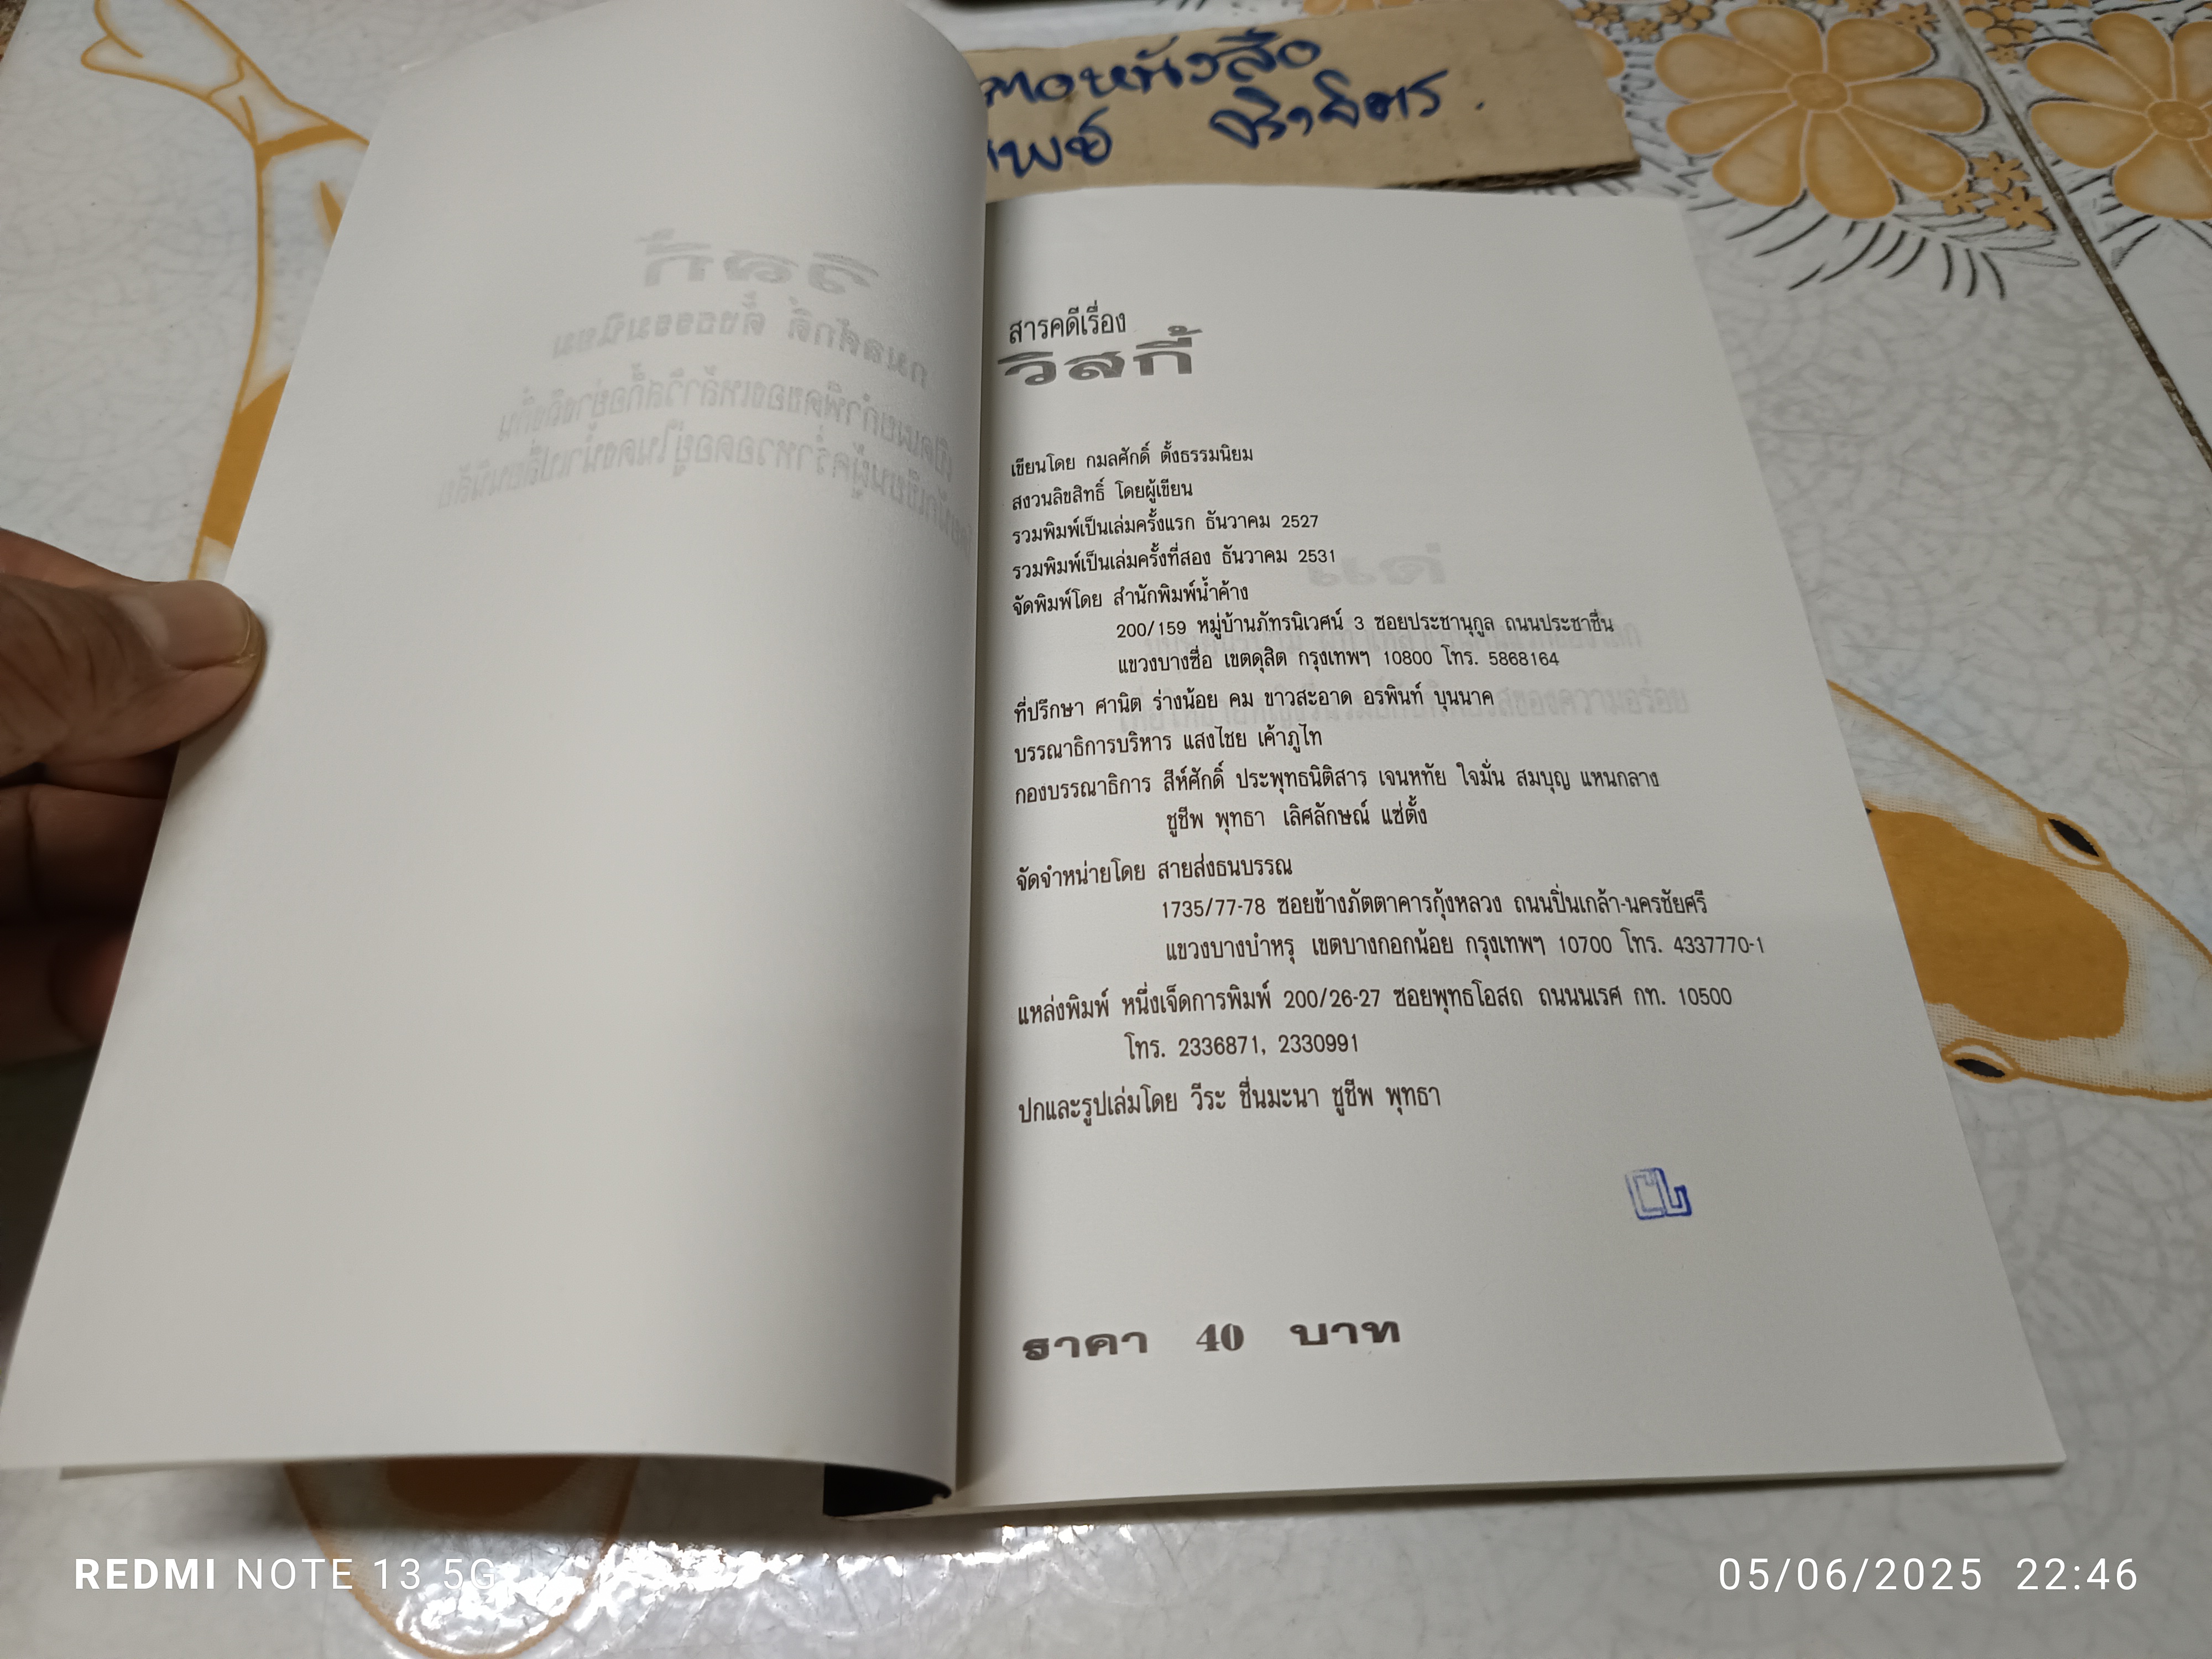 หนังสือ
สารคดีเรื่อง
วิสกี้
เขียนโดย กมลศักดิ์ ตั้งธรรมนิยม
สงวนลิขสิทธิ์ โดยผู้เขียน
รวมพิมพ์เป็นเล่มครั้งแรก ธันวาคม 2527
รวมพิมพ์เป็นเล่มครั้งที่สอง ธันวาคม 2531
จัดพิมพ์โดย สำนักพิมพ์น้ำค้าง
200/159 หมู่บ้านภัทรนิเวศน์ 3 ซอยประชานุกูล ถนนประชาชื่น
แขวงบางซื่อ เขตดุสิต กรุงเทพฯ 10800 โทร. 5868164
ที่ปรึกษา ศานิต ร่างน้อย คม ขาวสะอาด อรพินท์ บุนนาค
บรรณาธิการบริหาร แสงไชย เค้าภูไท
กองบรรณาธิการ สีห์ศักดิ์ ประพุทธนิติสาร เจนหทัย ใจมั่น สมบุญ แหนกลาง
ชูชีพ พุทธา เลิศลักษณ์ แซ่ตั้ง
จัดจำหน่ายโดย สายส่งธนบรรณ
1735/77-78 ซอยข้างภัตตาคารกุ้งหลวง ถนนปิ่นเกล้า-นครชัยศรี
แขวงบางบำหรุ เขตบางกอกน้อย กรุงเทพฯ 10700 โทร. 4337770-1
แหล่งพิมพ์ หนึ่งเจ็ดการพิมพ์ 200/26-27 ซอยพุทธโอสถ ถนนนเรศ กท. 10500
โทร. 2336871, 2330991
ปกและรูปเล่มโดย วีระ ชื่นมะนา ชูชีพ พุทธา
ราคา 40 บาท
REDMI NOTE 13 5G
05/06/2025 22:46